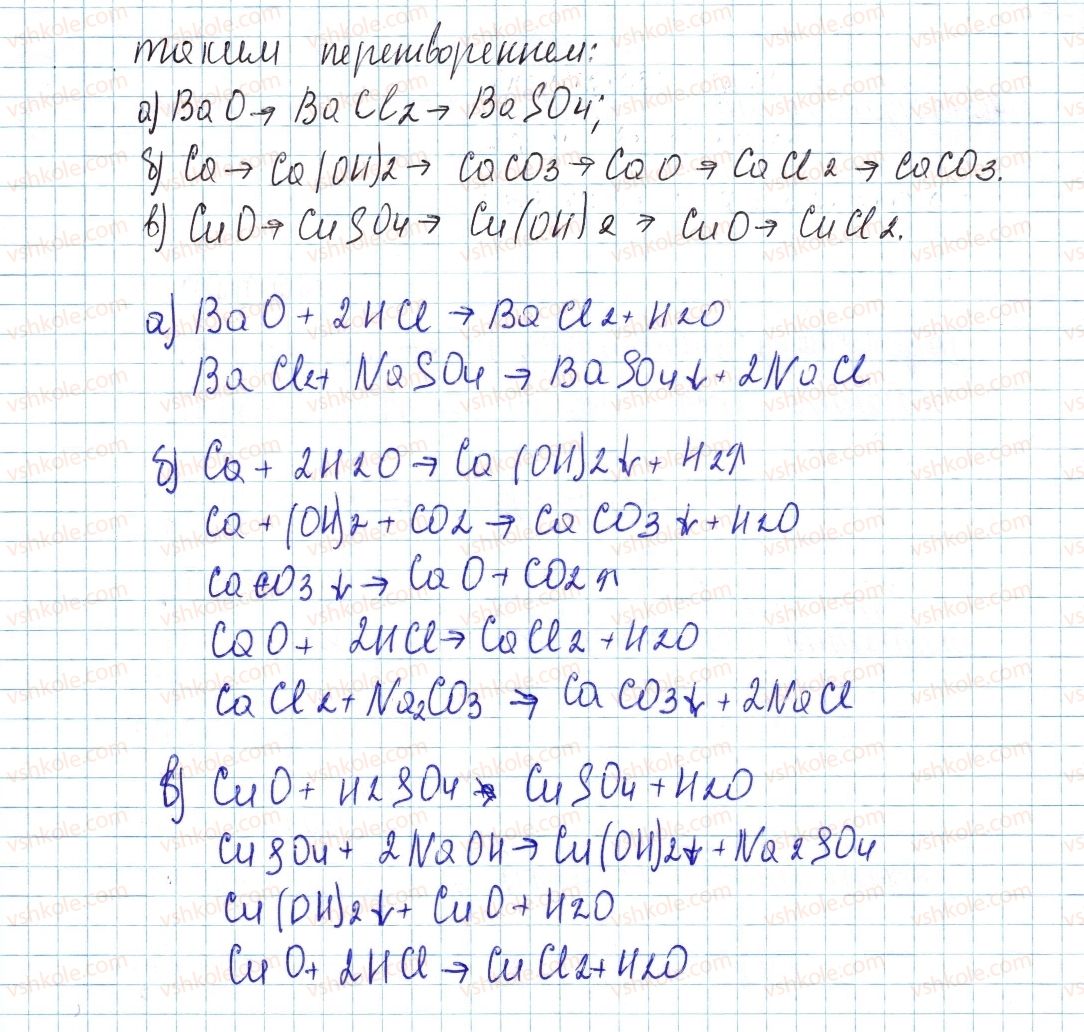 таким перетворенням:
а) BaO → BaCl2 → BaSO4;
б) Ca → Ca(OH)2 → CaCO3 → CaO → CaCl2 → CaCO3.
в) CuO → CuSO4 → Cu(OH)2 → CuO → CuCl2.
а) BaO + 2HCl → BaCl2 + H2O
BaCl2 + NaSO4 → BaSO4↓ + 2NaCl
б) Ca + 2H2O → Ca(OH)2↓ + H2↑
Ca + (OH)2 + CO2 → CaCO3↓ + H2O
CaCO3↓ → CaO + CO2↑
CaO + 2HCl → CaCl2 + H2O
CaCl2 + Na2CO3 → CaCO3↓ + 2NaCl
в) CuO + H2SO4 → CuSO4 + H2O
CuSO4 + 2NaOH → Cu(OH)2↓ + Na2SO4
Cu(OH)2↓ + CuO + H2O
CuO + 2HCl → CuCl2 + H2O